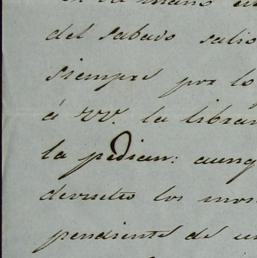 del sabado salio
siempre por lo
á VV. la libran
la pedian: aunq
devuelto los mo
pendiente de un